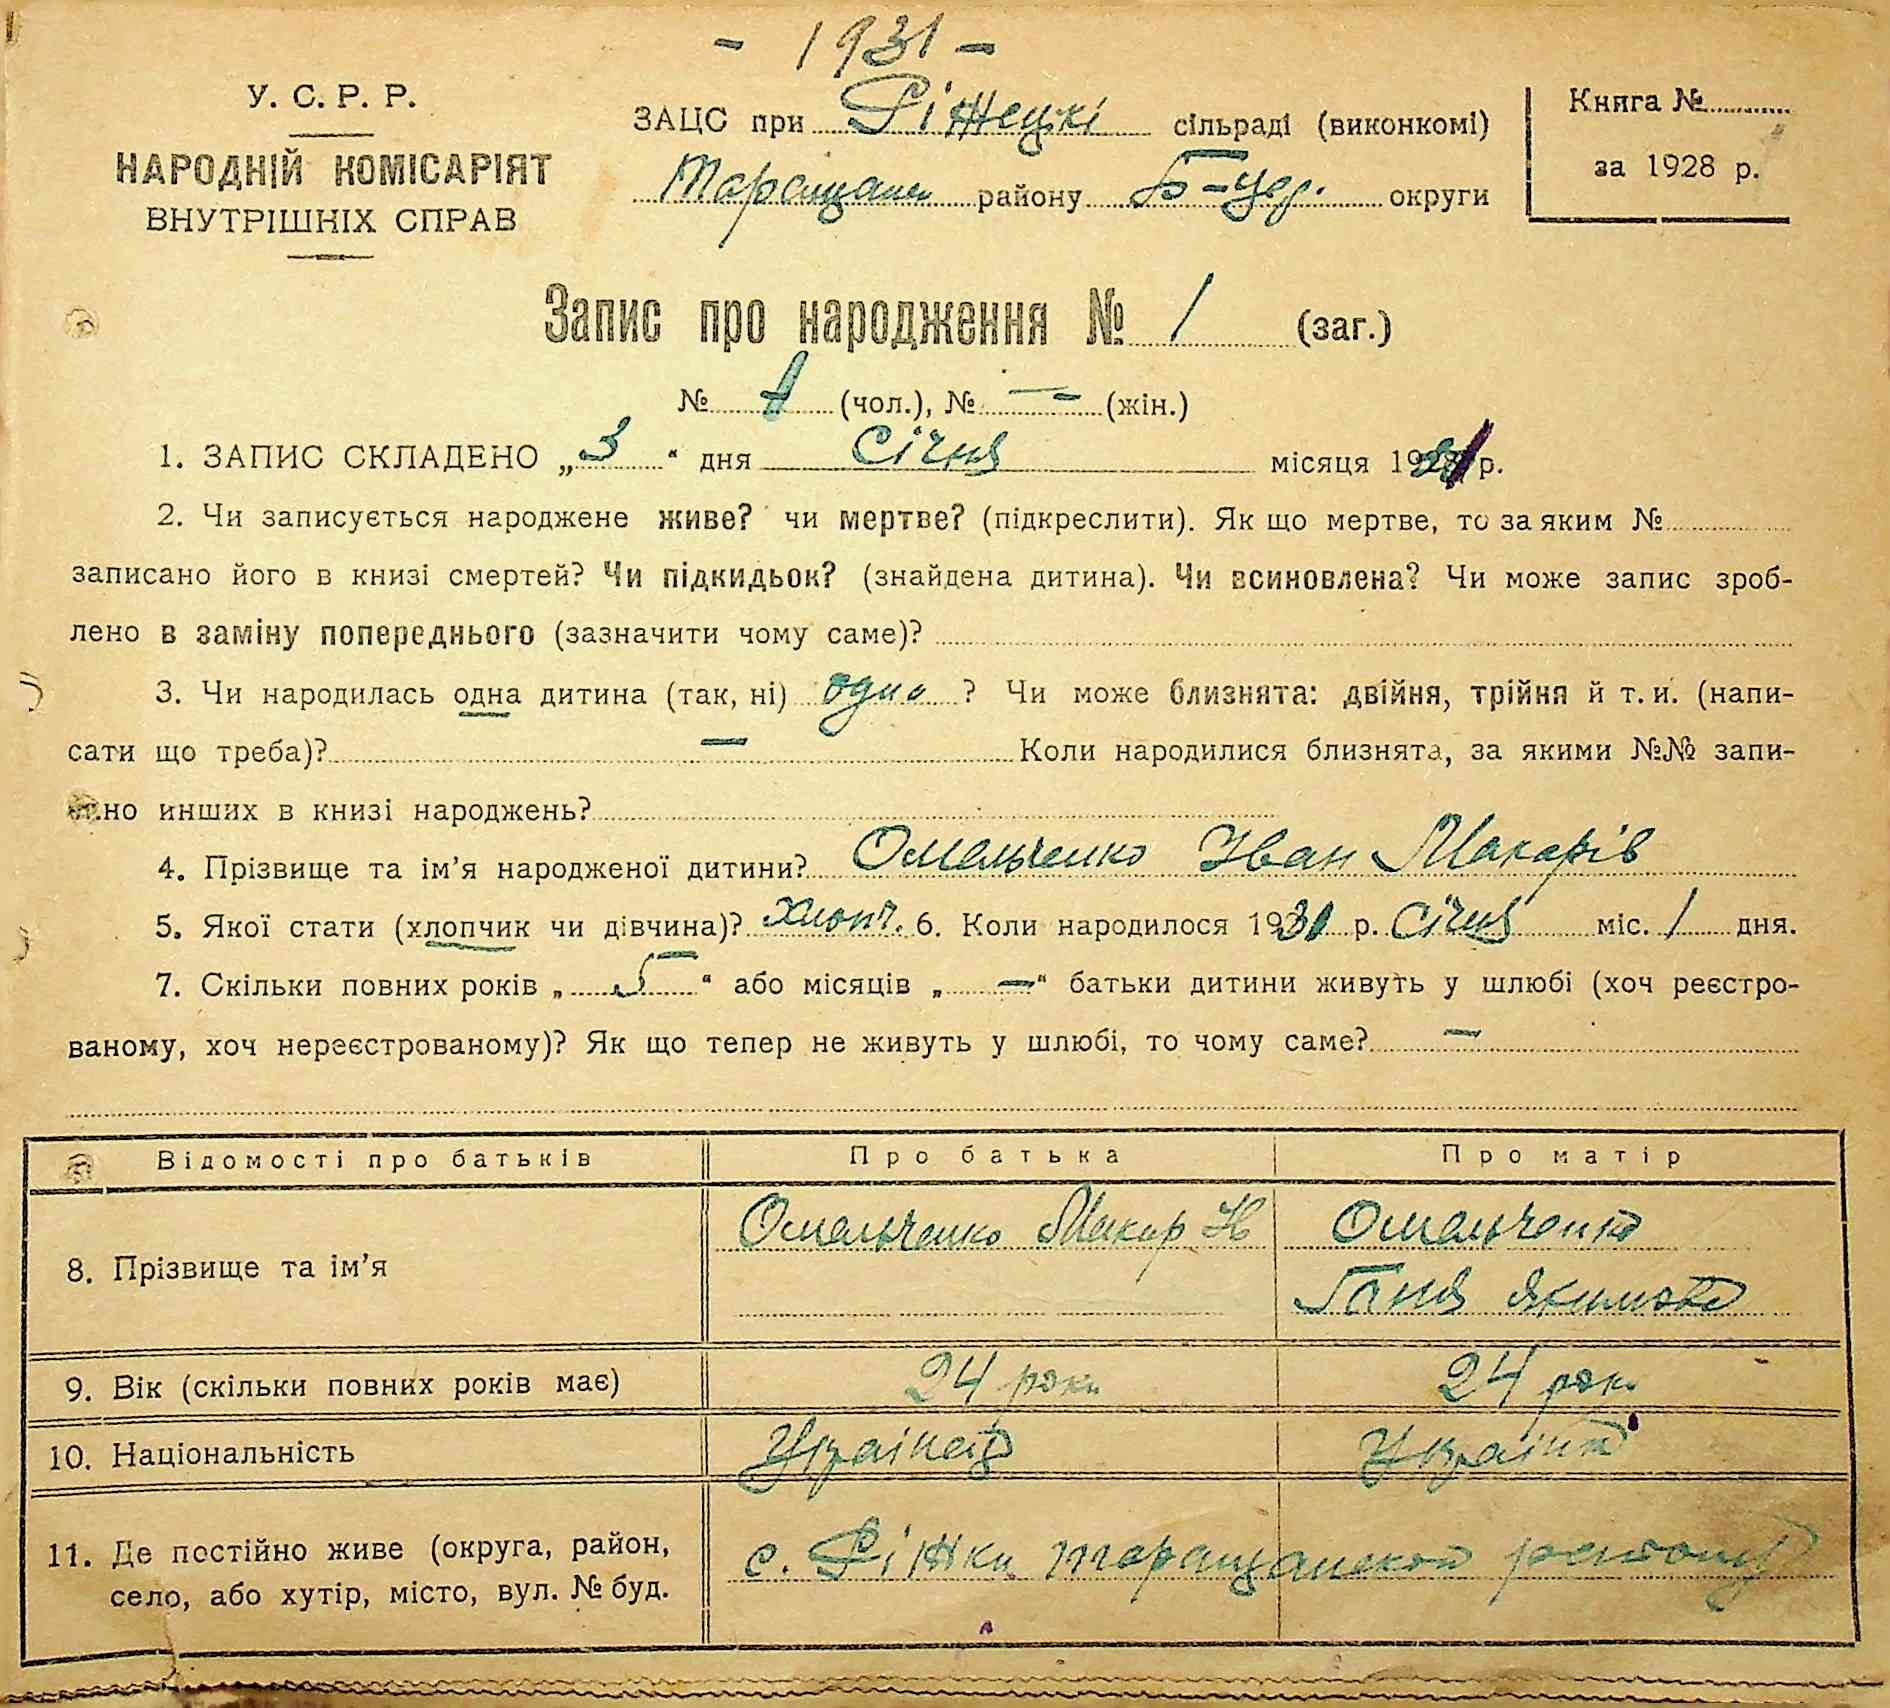 - 1931 -
У. С. Р. Р.
НАРОДНІЙ КОМІСАРІЯТ
ВНУТРІШНІХ СПРАВ
ЗАЦС при Ріжецкі сільраді (виконкомі)
Таращан району Б-Цер. округи
Книга №
за 1928 р.
Запис про народження № 1 (заг.)
№ 1 (чол.), № — (жін.)
1. ЗАПИС СКЛАДЕНО „3“ дня Січня місяця 1931 р.
2. Чи записується народжене живе? чи мертве? (підкреслити). Як що мертве, то за яким №
записано його в книзі смертей? Чи підкидьок? (знайдена дитина). Чи всиновлена? Чи може запис зроб-
лено в заміну попереднього (зазначити чому саме)?
3. Чи народилась одна дитина (так, ні) одна ? Чи може близнята: двійня, трійня й т. и. (напи-
сати що треба)? — Коли народилися близнята, за якими №№ запи-
сано инших в книзі народжень?
4. Прізвище та ім’я народженої дитини? Омельченко Іван Макарів
5. Якої стати (хлопчик чи дівчина)? Хлопч. 6. Коли народилося 1931 р. Січня міс. 1 дня.
7. Скільки повних років „5“ або місяців „—“ батьки дитини живуть у шлюбі (хоч реєстро-
ваному, хоч нереєстрованому)? Як що тепер не живуть у шлюбі, то чому саме? —
Відомості про батьків Про батька Про матір
8. Прізвище та ім’я Омельченко Макар Н Омельченко
Ганя Якимова
9. Вік (скільки повних років має) 24 роки 24 рок.
10. Національність Українец Україн
11. Де постійно живе (округа, район,
село, або хутір, місто, вул. № буд.
с. Ріжки Таращанског району